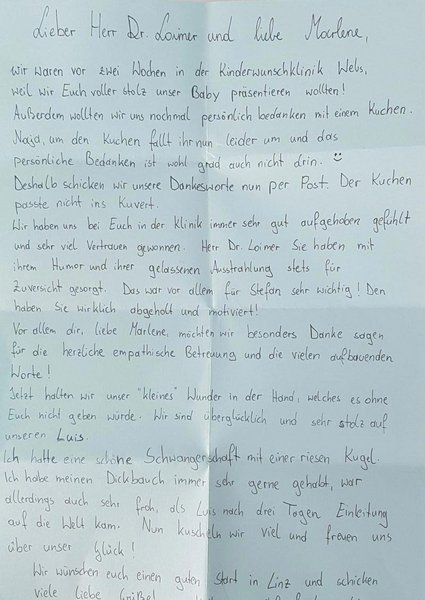 Lieber Herr Dr. Loimer und liebe Marlene,
wir waren vor zwei Wochen in der Kinderwunschklinik Wels,
weil wir Euch voller stolz unser Baby präsentieren wollten!
Außerdem wollten wir uns nochmal persönlich bedanken mit einem Kuchen.
Naja, um den Kuchen fallt ihr nun leider um und das
persönliche Bedanken ist wohl grad auch nicht drin.
Deshalb schicken wir unsere Dankesworte nun per Post. Der Kuchen
passte nicht ins Kuvert.
Wir haben uns bei Euch in der Klinik immer sehr gut aufgehoben gefühlt
und sehr viel Vertrauen gewonnen. Herr Dr. Loimer Sie haben mit
ihrem Humor und ihrer gelassenen Ausstrahlung stets für
Zuversicht gesorgt. Das war vor allem für Stefan sehr wichtig! Den
haben Sie wirklich abgeholt und motiviert!
Vor allem dir, liebe Marlene, möchten wir besonders Danke sagen
für die herzliche empathische Betreuung und die vielen aufbauenden
Worte!
Jetzt halten wir unser "kleines" Wunder in der Hand, welches es ohne
Euch nicht geben würde. Wir sind überglücklich und sehr stolz auf
unseren Luis.
Ich hatte eine schöne Schwangerschaft mit einer riesen Kugel.
Ich habe meinen Dickbauch immer sehr gerne gehabt, war
allerdings auch sehr froh, als Luis nach drei Tagen Einleitung
auf die Welt kam. Nun kuscheln wir viel und freuen uns
über unser Glück!
Wir wünschen euch einen guten Start in Linz und schicken
viele liebe Grüße